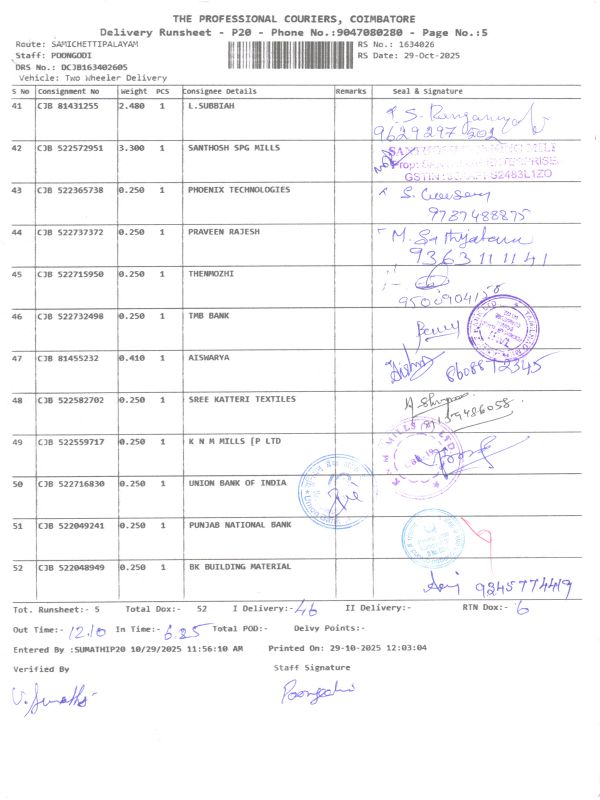 THE PROFESSIONAL COURIERS, COIMBATORE
Delivery Runsheet - P20 - Phone No.:9047080280 - Page No.:5
Route: SAMICHETTIPALAYAM RS No.: 1634026
Staff: POONGODI RS Date: 29-Oct-2025
DRS No.: DCJB163402605
Vehicle: Two Wheeler Delivery
S No Consignment No Weight PCS Consignee Details Remarks Seal & Signature
41 CJB 81431255 2.480 1 L.SUBBIAH
9629297502
42 CJB 522572951 3.300 1 SANTHOSH SPG MILLS
43 CJB 522365738 0.250 1 PHOENIX TECHNOLOGIES
9787488875
44 CJB 522737372 0.250 1 PRAVEEN RAJESH
9363111141
45 CJB 522715950 0.250 1 THENMOZHI
9500904158
46 CJB 522732498 0.250 1 TMB BANK
47 CJB 81455232 0.410 1 AISWARYA
8608812345
48 CJB 522582702 0.250 1 SREE KATTERI TEXTILES
49 CJB 522559717 0.250 1 K N M MILLS [P LTD
50 CJB 522716830 0.250 1 UNION BANK OF INDIA
51 CJB 522049241 0.250 1 PUNJAB NATIONAL BANK
52 CJB 522048949 0.250 1 BK BUILDING MATERIAL
9245774419
Tot. Runsheet:- 5 Total Dox:- 52 I Delivery:- 46 II Delivery:- RTN Dox:- 6
Out Time:- 12.10 In Time:- 6.25 Total POD:- Delvy Points:-
Entered By :SUMATHIP20 10/29/2025 11:56:10 AM Printed On: 29-10-2025 12:03:04
Verified By Staff Signature
V. Sumathi Poongodi